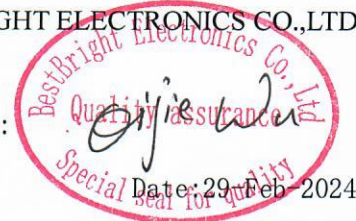 GHT ELECTRONICS CO.,LTD
BestBright Electronics Co., Ltd
Quality assurance
:
Qijie Wu
Special seal for quality
Date:29-Feb-2024